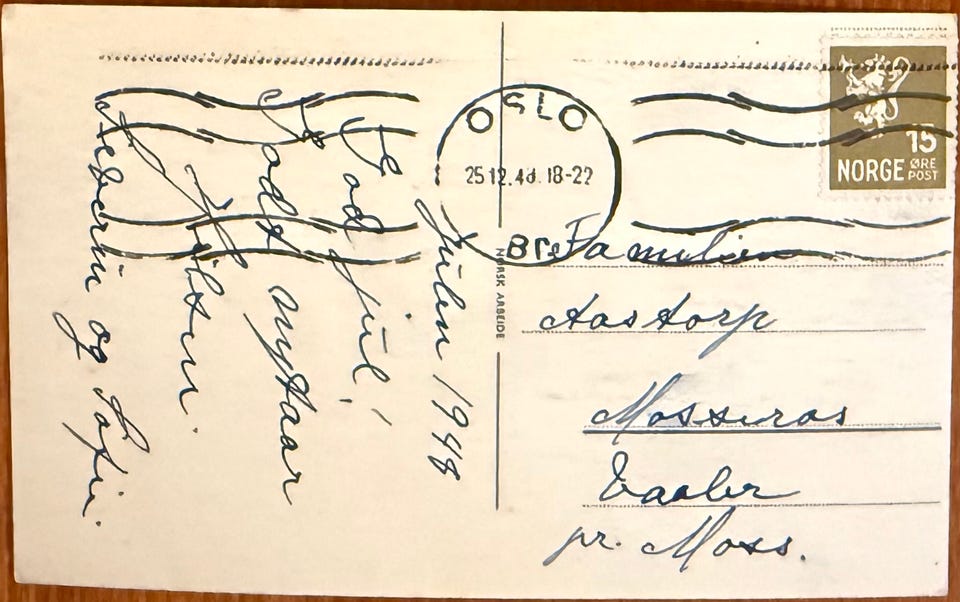 OSLO
25 12. 48. 18-22
Br
15
NORGE ØRE
POST
NORSK ARBEIDE
Julen 1948
god jul!
godt nytaar
Hilsen.
Severin og Sofie.
Familien
Aastorp
Mosseros
Vaaler
pr. Moss.